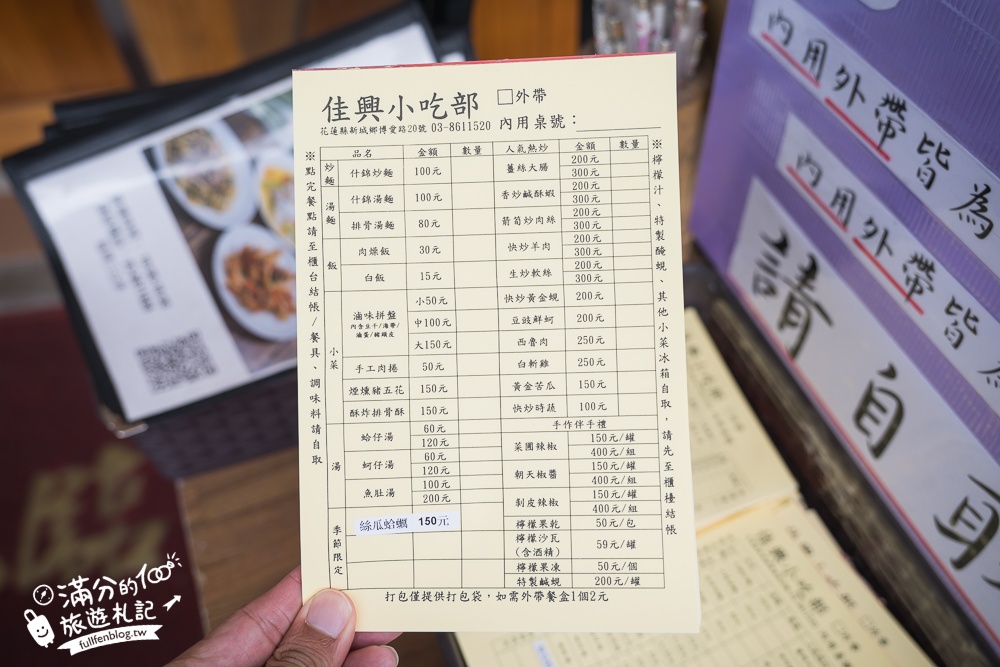 佳興小吃部 □外帶
花蓮縣新城鄉博愛路20號 03-8611520 內用桌號：
※點完餐點請至櫃台結帳/餐具、調味料請自取
品名 金額 數量
炒麵 什錦炒麵 100元
湯麵 什錦湯麵 100元
排骨湯麵 80元
飯 肉燥飯 30元
白飯 15元
小菜 滷味拼盤 小50元
內含豆干/海帶/
滷蛋/豬頭皮
中100元
大150元
手工肉捲 50元
煙燻豬五花 150元
酥炸排骨酥 150元
湯 蛤仔湯 60元
120元
蚵仔湯 60元
120元
魚肚湯 100元
200元
季節限定 絲瓜蛤蠣 150元
人氣熱炒 金額 數量
薑絲大腸 200元
300元
香炒鹹酥蝦 200元
300元
箭筍炒肉絲 200元
300元
快炒羊肉 200元
300元
生炒軟絲 200元
300元
快炒黃金蜆 200元
豆豉鮮蚵 200元
西魯肉 250元
白斬雞 250元
黃金苦瓜 150元
快炒時蔬 100元
手作伴手禮
菜圃辣椒 150元/罐
400元/組
朝天椒醬 150元/罐
400元/組
剝皮辣椒 150元/罐
400元/組
檸檬果乾 50元/包
檸檬沙瓦
(含酒精) 59元/罐
檸檬果凍 50元/個
特製鹹蜆 200元/罐
※檸檬汁、特製醃蜆、其他小菜冰箱自取，請先至櫃檯結帳
打包僅提供打包袋，如需外帶餐盒1個2元
內用外帶皆為
內用外帶皆為
請自
滿分的
旅遊札記
fullfenblog.tw